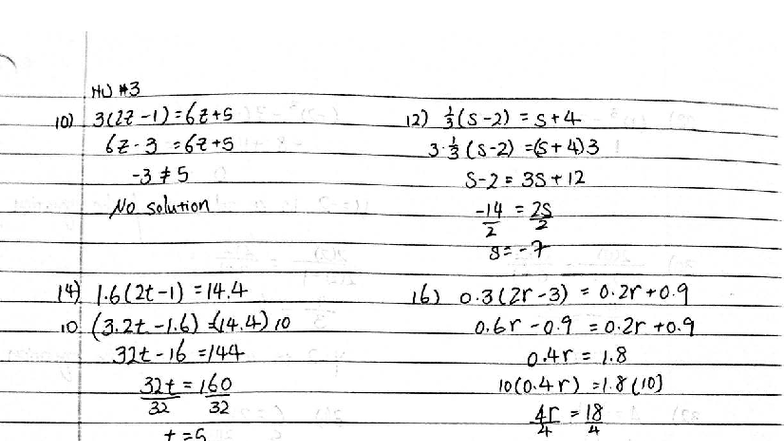 HW #3
10) 3(2z-1)=6z+5
6z-3=6z+5
-3≠5
No solution
12) 1/3(s-2)=s+4
3·1/3(s-2)=(s+4)3
s-2=3s+12
-14/2=2s/2
s=-7
14) 1.6(2t-1)=14.4
10(3.2t-1.6)=(14.4)10
32t-16=144
32t/32=160/32
t=5
16) 0.3(2r-3)=0.2r+0.9
0.6r-0.9=0.2r+0.9
0.4r=1.8
10(0.4r)=1.8(10)
4r/4=18/4